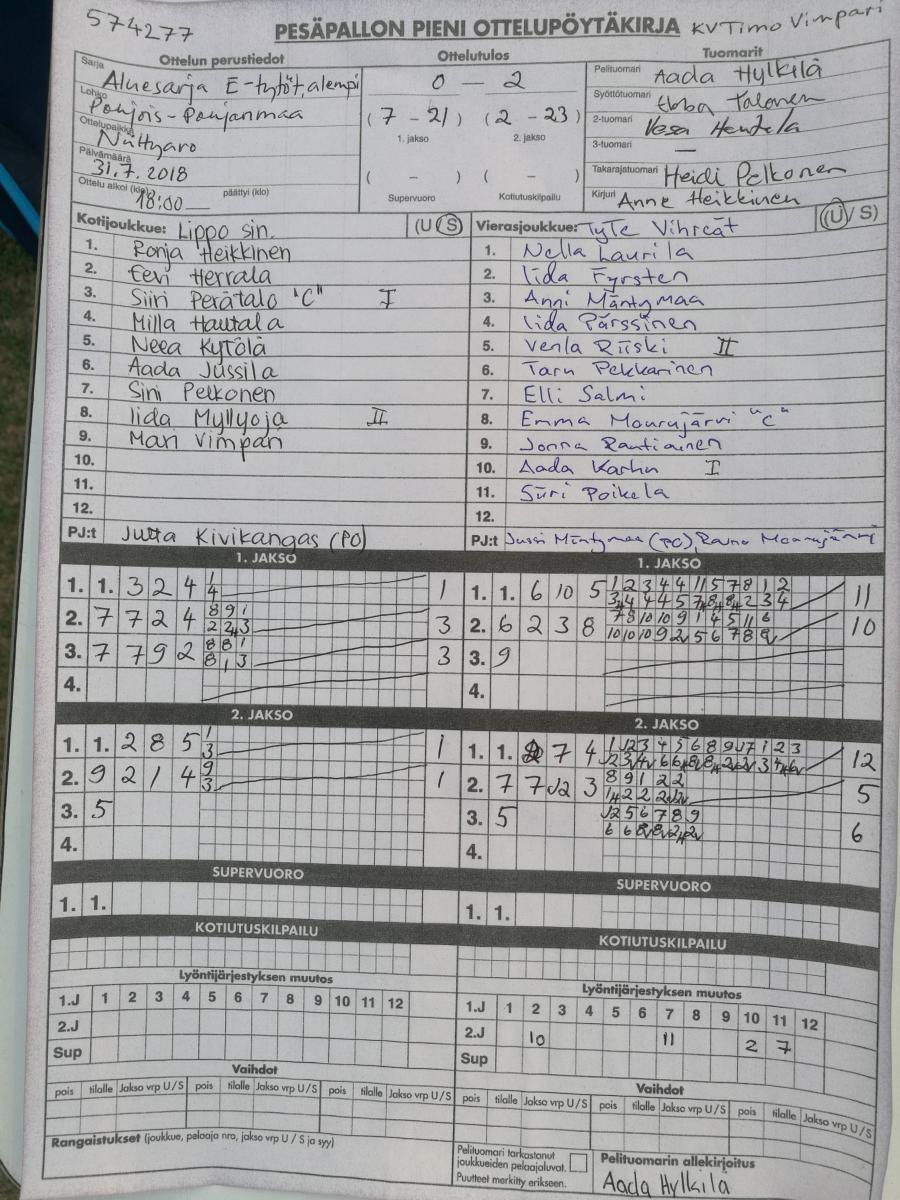 574277
PESÄPALLON PIENI OTTELUPÖYTÄKIRJA KV Timo Vimpari
Ottelun perustiedot
Sarja Aluesarja E-tytöt, alempi
Lohko Pohjois-Pohjanmaa
Ottelupaikka
Päivämäärä 31.7.2018
Ottelu alkoi (klo) 18:00 päättyi (klo)
Ottelutulos
0 – 2
(7 - 21) (2 - 23)
1. jakso 2. jakso
( - ) ( - )
Supervuoro Kotiutuskilpailu
Tuomarit
Pelituomari Aada Hylkilä
Syöttötuomari Ebba Talonen
2-tuomari Vesa Hentelä
3-tuomari —
Takarajatuomari Heidi Pelkonen
Kirjuri Anne Heikkinen
Kotijoukkue: Lippo sin. (U/S)
1. Ronja Heikkinen
2. Eevi Herrala
3. Siiri Perätalo "C" I
4. Milla Hautala
5. Neea Kytölä
6. Aada Jussila
7. Sini Pelkonen
8. Iida Myllyoja II
9. Mari Vimpari
10.
11.
12.
PJ:t Jutta Kivikangas (PO)
Vierasjoukkue: TyTe Vihreät (U/S)
1. Nella Laurila
2. Iida Fyrsten
3. Anni Mäntymaa
4. Iida Pärssinen
5. Venla Riiski II
6. Taru Pekkarinen
7. Elli Salmi
8. Emma Mourujärvi "C"
9. Jonna Rautiainen
10. Aada Karhu I
11. Siiri Poikela
12.
PJ:t Jussi Mäntymaa (PO), Rauno Mourujärvi
1. JAKSO
1. 1. 3 2 4 1 1
4
2. 7 7 2 4 8 9 1 3
2 2 3
3. 7 7 9 2 8 8 1 3
8 1 3
4.
1. JAKSO
1. 1. 6 10 5 1 2 3 4 4 11 5 7 8 1 2 11
2. 6 2 3 8 7 8 10 10 9 1 4 5 11 6 10
3. 9
4.
2. JAKSO
1. 1. 2 8 5 1 1
3
2. 9 2 1 4 9 1
3
3. 5
4.
2. JAKSO
1. 1. 7 4 12
2. 7 7 3 8 9 1 2 2 5
3. 5 6
4.
SUPERVUORO
1. 1.
SUPERVUORO
1. 1.
KOTIUTUSKILPAILU
KOTIUTUSKILPAILU
Lyöntijärjestyksen muutos
1.J 1 2 3 4 5 6 7 8 9 10 11 12
2.J
Sup
Lyöntijärjestyksen muutos
1.J 1 2 3 4 5 6 7 8 9 10 11 12
2.J 10 11 2 7
Sup
Vaihdot
pois tilalle Jakso vrp U/S pois tilalle Jakso vrp U/S pois tilalle Jakso vrp U/S
Vaihdot
pois tilalle Jakso vrp U/S pois tilalle Jakso vrp U/S pois tilalle Jakso vrp U/S
Rangaistukset (joukkue, pelaaja nro, jakso vrp U / S ja syy)
Pelituomari tarkastanut
joukkueiden pelaajaluvat.
Puutteet merkitty erikseen.
Pelituomarin allekirjoitus
Aada Hylkilä